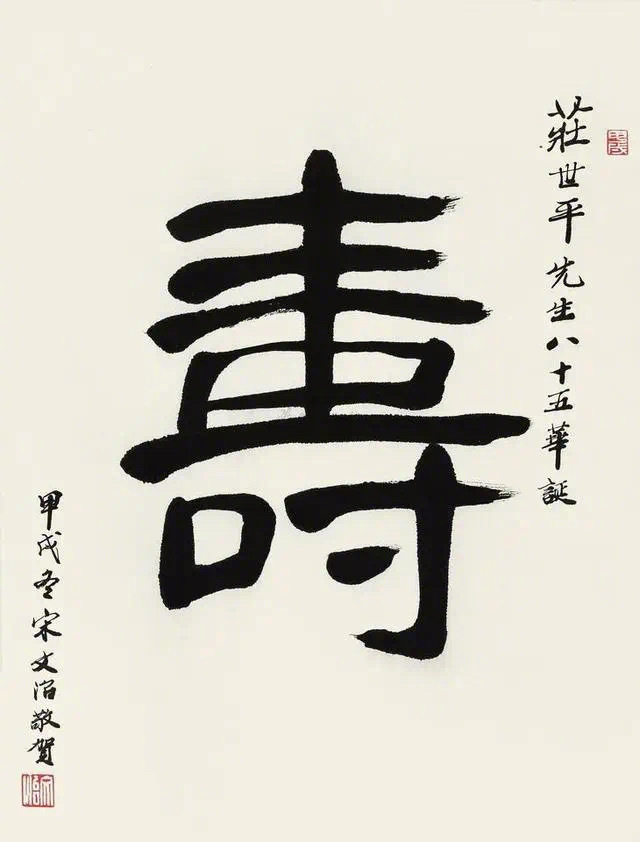 莊世平先生八十五華誕
壽
甲戌冬宋文治敬賀
甲戌